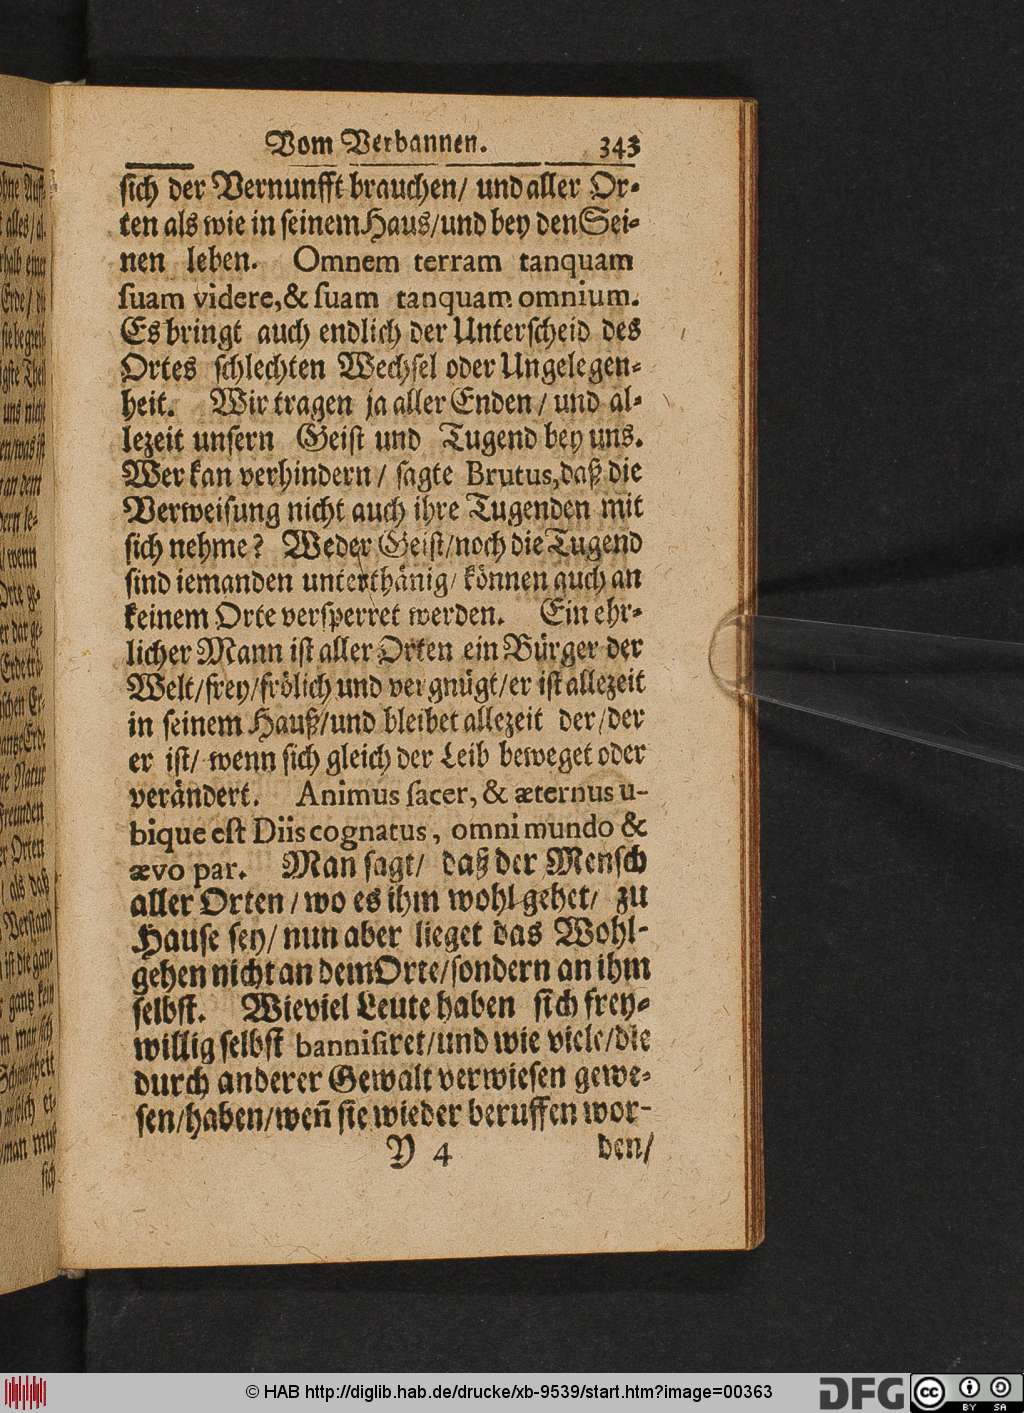 Vom Verbannen. 343
sich der Vernunfft brauchen/ und aller Or-
ten als wie in seinem Haus/und bey den Sei-
nen leben. Omnem terram tanquam
suam videre,& suam tanquam omnium.
Es bringt auch endlich der Unterscheid des
Ortes schlechten Wechsel oder Ungelegen-
heit. Wir tragen ja aller Enden / und al-
lezeit unsern Geist und Tugend bey uns.
Wer kan verhindern / sagte Brutus, daß die
Verweisung nicht auch ihre Tugenden mit
sich nehme? Weder Geist/noch die Tugend
sind iemanden unterthänig/ können auch an
keinem Orte versperret werden. Ein ehr-
licher Mann ist aller Orten ein Bürger der
Welt/frey/frölich und vergnügt/er ist allezeit
in seinem Hauß/und bleibet allezeit der/der
er ist/ wenn sich gleich der Leib beweget oder
verändert. Animus sacer, & æternus u-
bique est Diis cognatus, omni mundo &
ævo par. Man sagt/ daß der Mensch
aller Orten / wo es ihm wohl gehet/ zu
Hause sey/ nun aber lieget das Wohl-
gehen nicht an dem Orte/sondern an ihm
selbst. Wieviel Leute haben sich frey-
willig selbst bannisiret/und wie viele/die
durch anderer Gewalt verwiesen gewe-
sen/haben/weñ sie wieder beruffen wor-
Y 4 den/
© HAB http://diglib.hab.de/drucke/xb-9539/start.htm?image=00363
DFG
cc BY SA